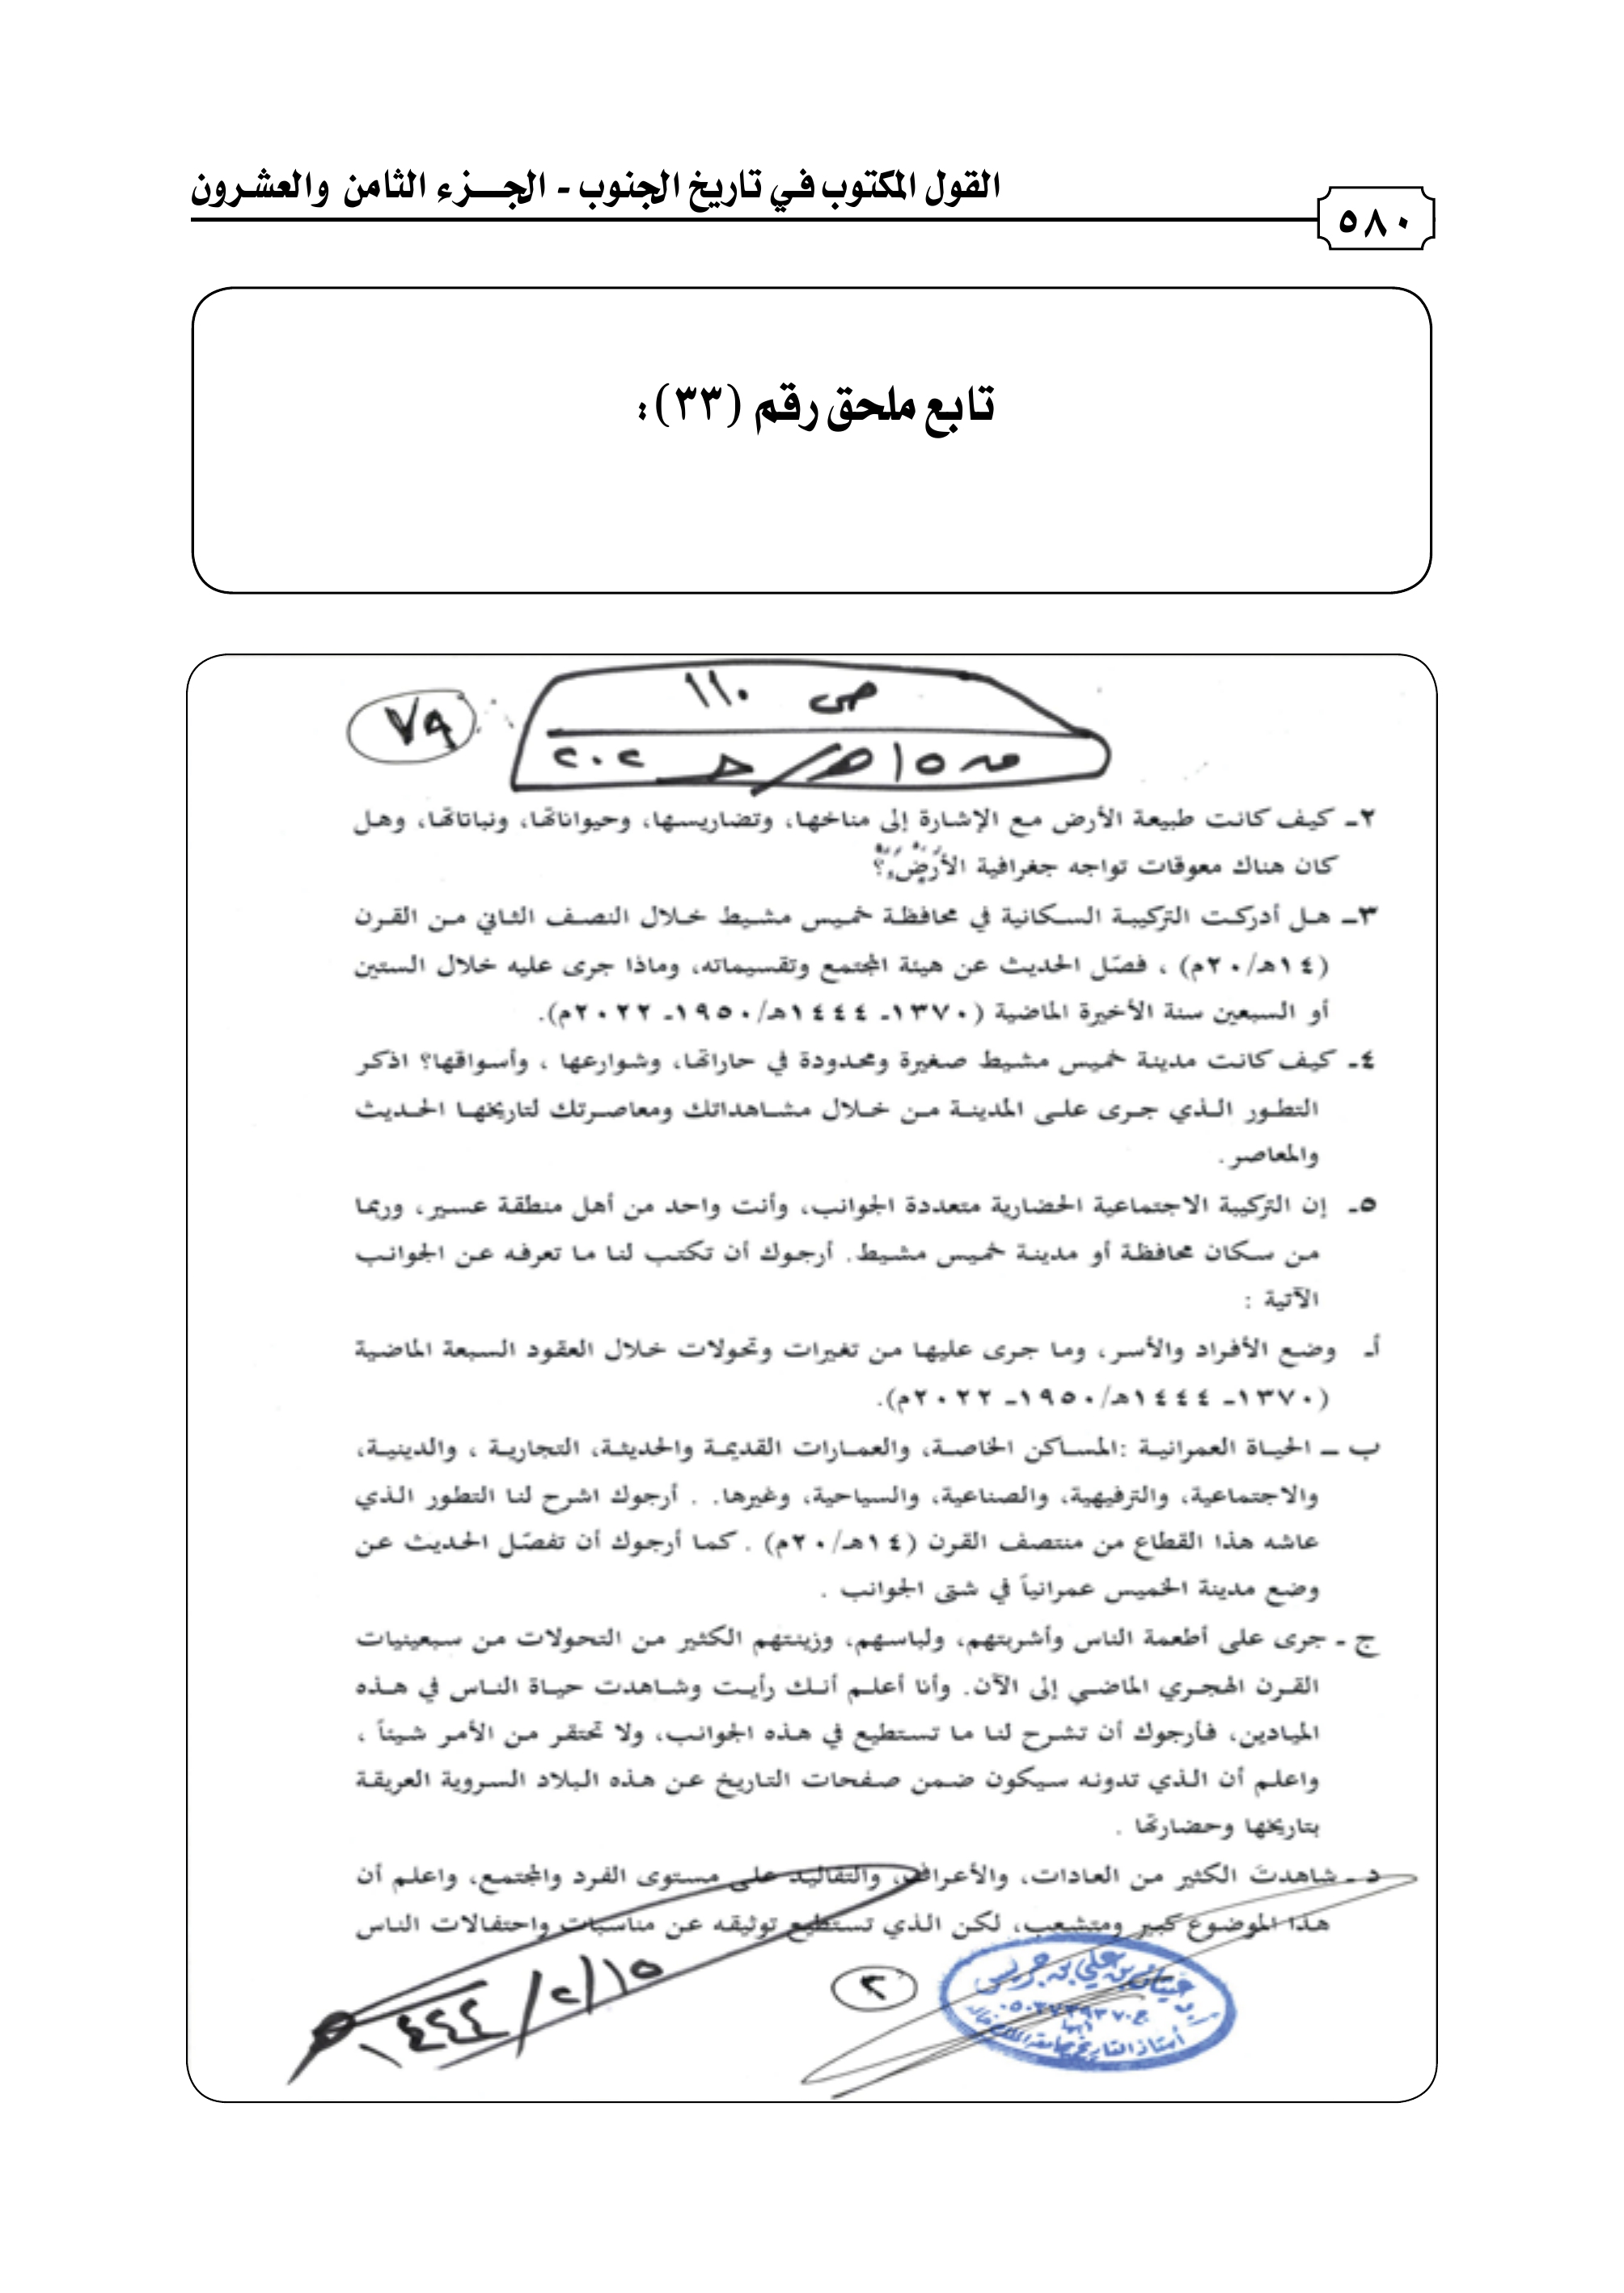 القول المكتوب في تاريخ الجنوب - الجزء الثامن والعشرون
٥٨٠
تابع ملحق رقم (٣٣):
ص ١١٠
٧٩
٢ـ كيف كانت طبيعة الأرض مع الإشارة إلى مناخها، وتضاريسها، وحيواناتها، ونباتاتها، وهل
كان هناك معوقات تواجه جغرافية الأرض؟
٣ـ هل أدركت التركيبة السكانية في محافظة خميس مشيط خلال النصف الثاني من القرن
(١٤هـ/٢٠م) ، فصّل الحديث عن هيئة المجتمع وتقسيماته، وماذا جرى عليه خلال الستين
أو السبعين سنة الأخيرة الماضية (١٣٧٠ـ ١٤٤٤هـ/١٩٥٠ـ ٢٠٢٢م).
٤ـ كيف كانت مدينة خميس مشيط صغيرة ومحدودة في حاراتها، وشوارعها ، وأسواقها؟ اذكر
التطور الذي جرى على المدينة من خلال مشاهداتك ومعاصرتك لتاريخها الحديث
والمعاصر .
٥ـ إن التركيبة الاجتماعية الحضارية متعددة الجوانب، وأنت واحد من أهل منطقة عسير، وربما
من سكان محافظة أو مدينة خميس مشيط. أرجوك أن تكتب لنا ما تعرفه عن الجوانب
الآتية :
أـ وضع الأفراد والأسر، وما جرى عليها من تغيرات وتحولات خلال العقود السبعة الماضية
(١٣٧٠ـ ١٤٤٤هـ/١٩٥٠ـ ٢٠٢٢م).
ب ـ الحياة العمرانية :المساكن الخاصة، والعمارات القديمة والحديثة، التجارية ، والدينية،
والاجتماعية، والترفيهية، والصناعية، والسياحية، وغيرها. . أرجوك اشرح لنا التطور الذي
عاشه هذا القطاع من منتصف القرن (١٤هـ/٢٠م) . كما أرجوك أن تفصّل الحديث عن
وضع مدينة الخميس عمرانياً في شتى الجوانب .
ج ـ جرى على أطعمة الناس وأشربتهم، ولباسهم، وزينتهم الكثير من التحولات من سبعينيات
القرن الهجري الماضي إلى الآن. وأنا أعلم أنك رأيت وشاهدت حياة الناس في هذه
الميادين، فأرجوك أن تشرح لنا ما تستطيع في هذه الجوانب، ولا تحتقر من الأمر شيئاً ،
واعلم أن الذي تدونه سيكون ضمن صفحات التاريخ عن هذه البلاد السروية العريقة
بتاريخها وحضارتها .
د ـ شاهدتَ الكثير من العادات، والأعراف، والتقاليد على مستوى الفرد والمجتمع، واعلم أن
هذا الموضوع كبير ومتشعب، لكن الذي تستطيع توثيقه عن مناسبات واحتفالات الناس
١٥/٢/١٤٤٤هـ
٢
أستاذ التاريخ بجامعة الملك خالد